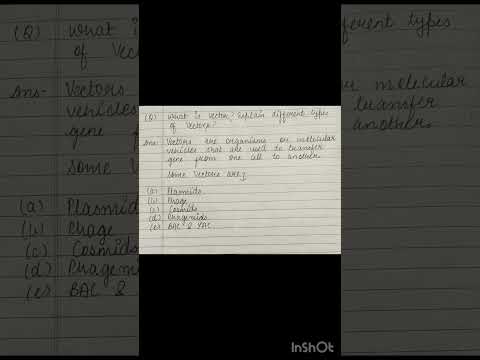 (Q) What is vector? Explain different types
of vectors?
Ans- Vectors are organisms or molecular
vehicles that are used to transfer
gene from one cell to another.
Some vectors are;
(a) Plasmids
(b) Phage
(c) Cosmids
(d) Phagemids
(e) BAC & YAC
INSHOT